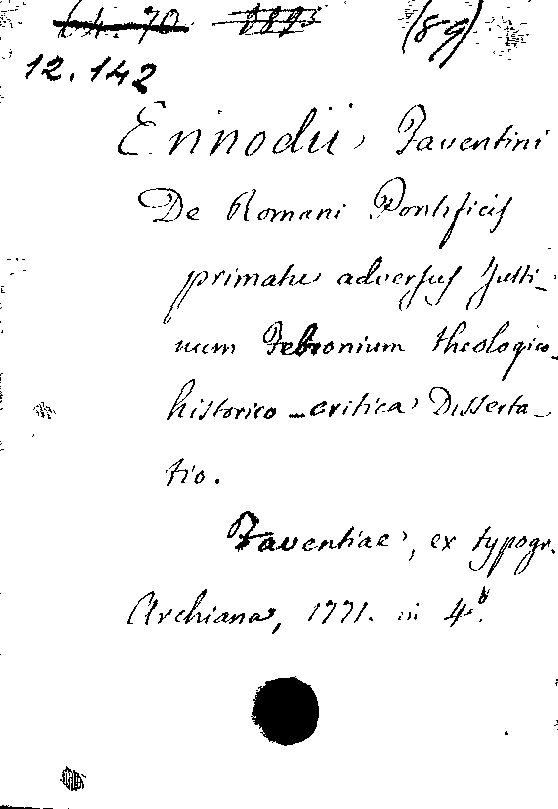 64. 70 1893 (89)
12.142
Ennodii Faventini
De Romani Pontificis
primatu adversus Justi-
num Febronium theologico-
historico-critica Disserta-
tio.
Faventiae, ex typogr.
Archiana, 1771. in 4º.